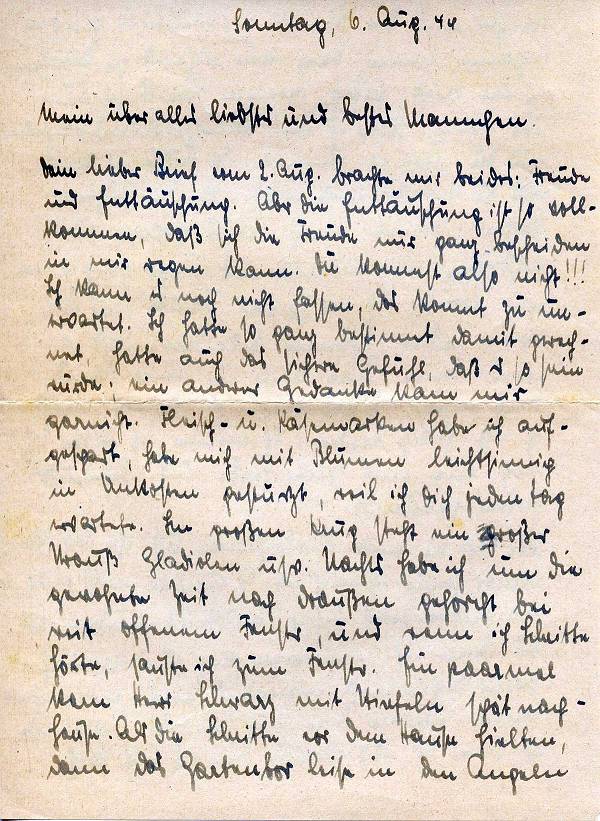 Sonntag, 6. Aug. 44
Mein über alles liebstes und bestes Mannchen.
Dein lieber Brief vom 2. Aug. brachte mir beides: Freude
und Enttäuschung. Aber die Enttäuschung ist so voll-
kommen, daß sich die Freude nur ganz bescheiden
in mir regen kann. Du kommst also nicht!!!
Ich kann es noch nicht fassen, das kommt zu un-
erwartet. Ich hatte so ganz bestimmt damit gerech-
net, hatte auch das sichere Gefühl, daß es so sein
würde; ein anderer Gedanke kam mir
garnicht. Fleisch- u. Käsemarken habe ich auf-
gespart, habe mich mit Blumen leichtsinnig
in Unkosten gestürzt, weil ich Dich jeden Tag
erwartete. Im großen Krug steht ein großer
Strauß Gladiolen usw. Nachts habe ich um die
gewohnte Zeit nach draußen gehorcht bei
weit offenem Fenster, und wenn ich Schritte
hörte, sauste ich zum Fenster. Ein paarmal
kam Herr Schwarz mit Stiefeln spät nach-
hause. Als die Schritte vor dem Hause hielten,
dann das Gartentor leise in den Angeln